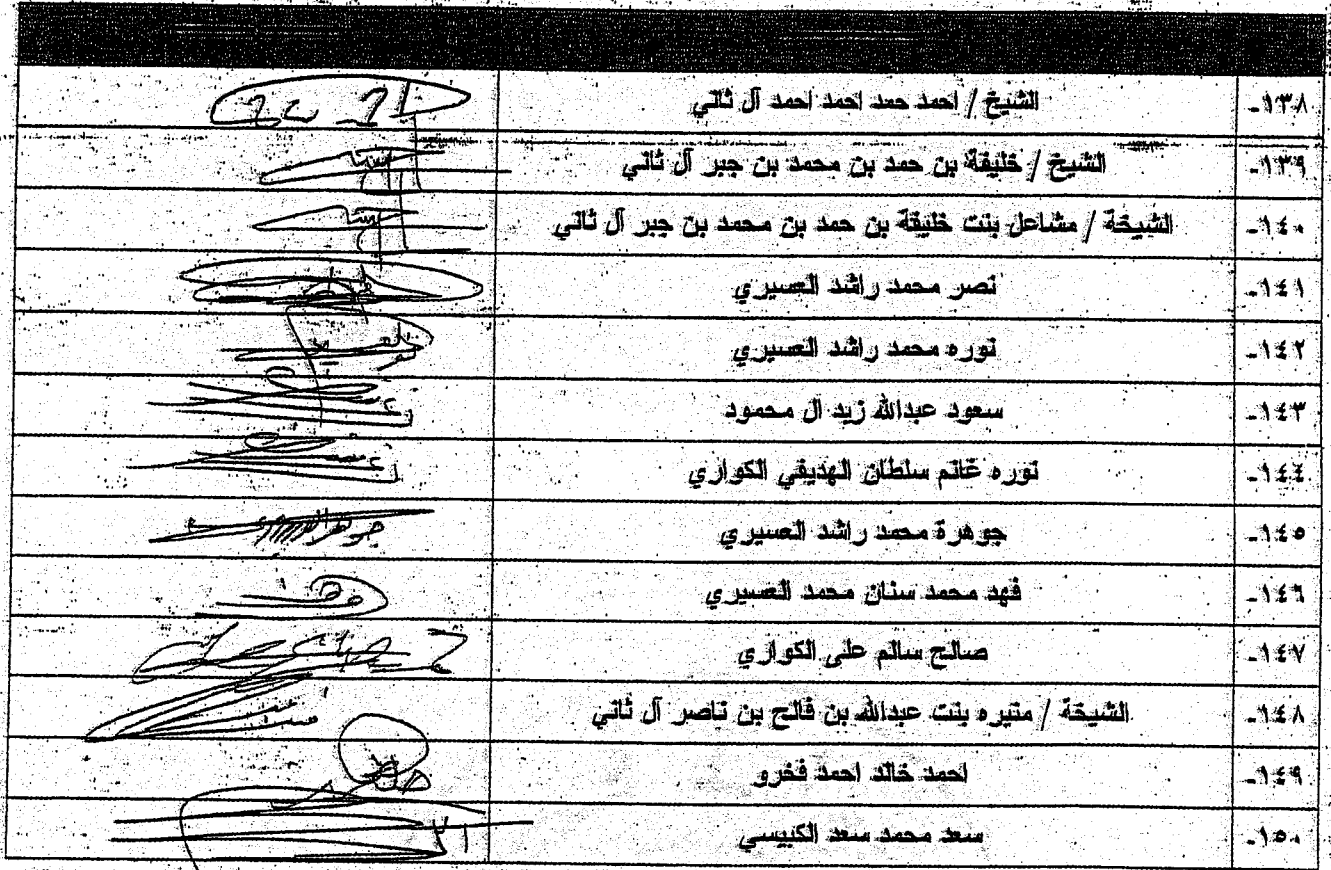 ١٣٨- الشيخ / احمد حمد احمد احمد آل ثاني
١٣٩- الشيخ / خليفة بن حمد بن محمد بن جبر آل ثاني
١٤٠- الشيخة / مشاعل بنت خليفة بن حمد بن محمد بن جبر آل ثاني
١٤١- نصر محمد راشد العسيري
١٤٢- نوره محمد راشد العسيري
١٤٣- سعود عبدالله زيد ال محمود
١٤٤- نوره غانم سلطان الهديفي الكواري
١٤٥- جوهرة محمد راشد العسيري
١٤٦- فهد محمد سنان محمد العسيري
١٤٧- صالح سالم على الكواري
١٤٨- الشيخة / منيره بنت عبدالله بن فالح بن ناصر آل ثاني
١٤٩- احمد خالد احمد فخرو
١٥٠- سعد محمد سعد الكبيسي